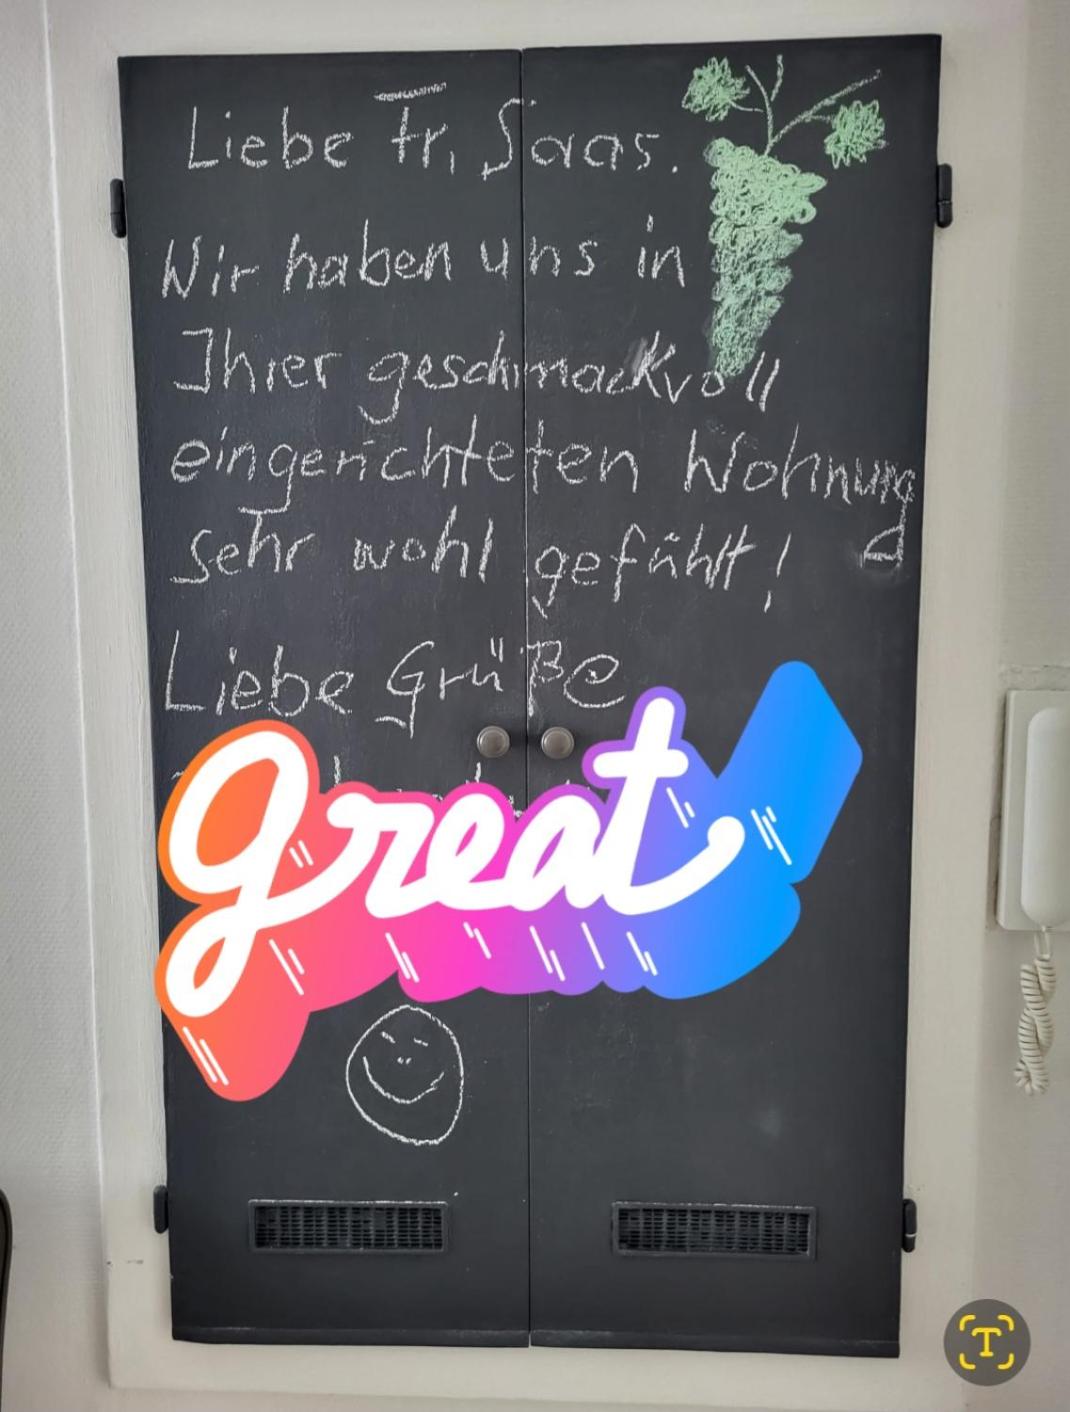 Liebe Fr. Saas.
Wir haben uns in
Ihrer geschmackvoll
eingerichteten Wohnung
sehr wohl gefühlt!
Liebe Grüße
great